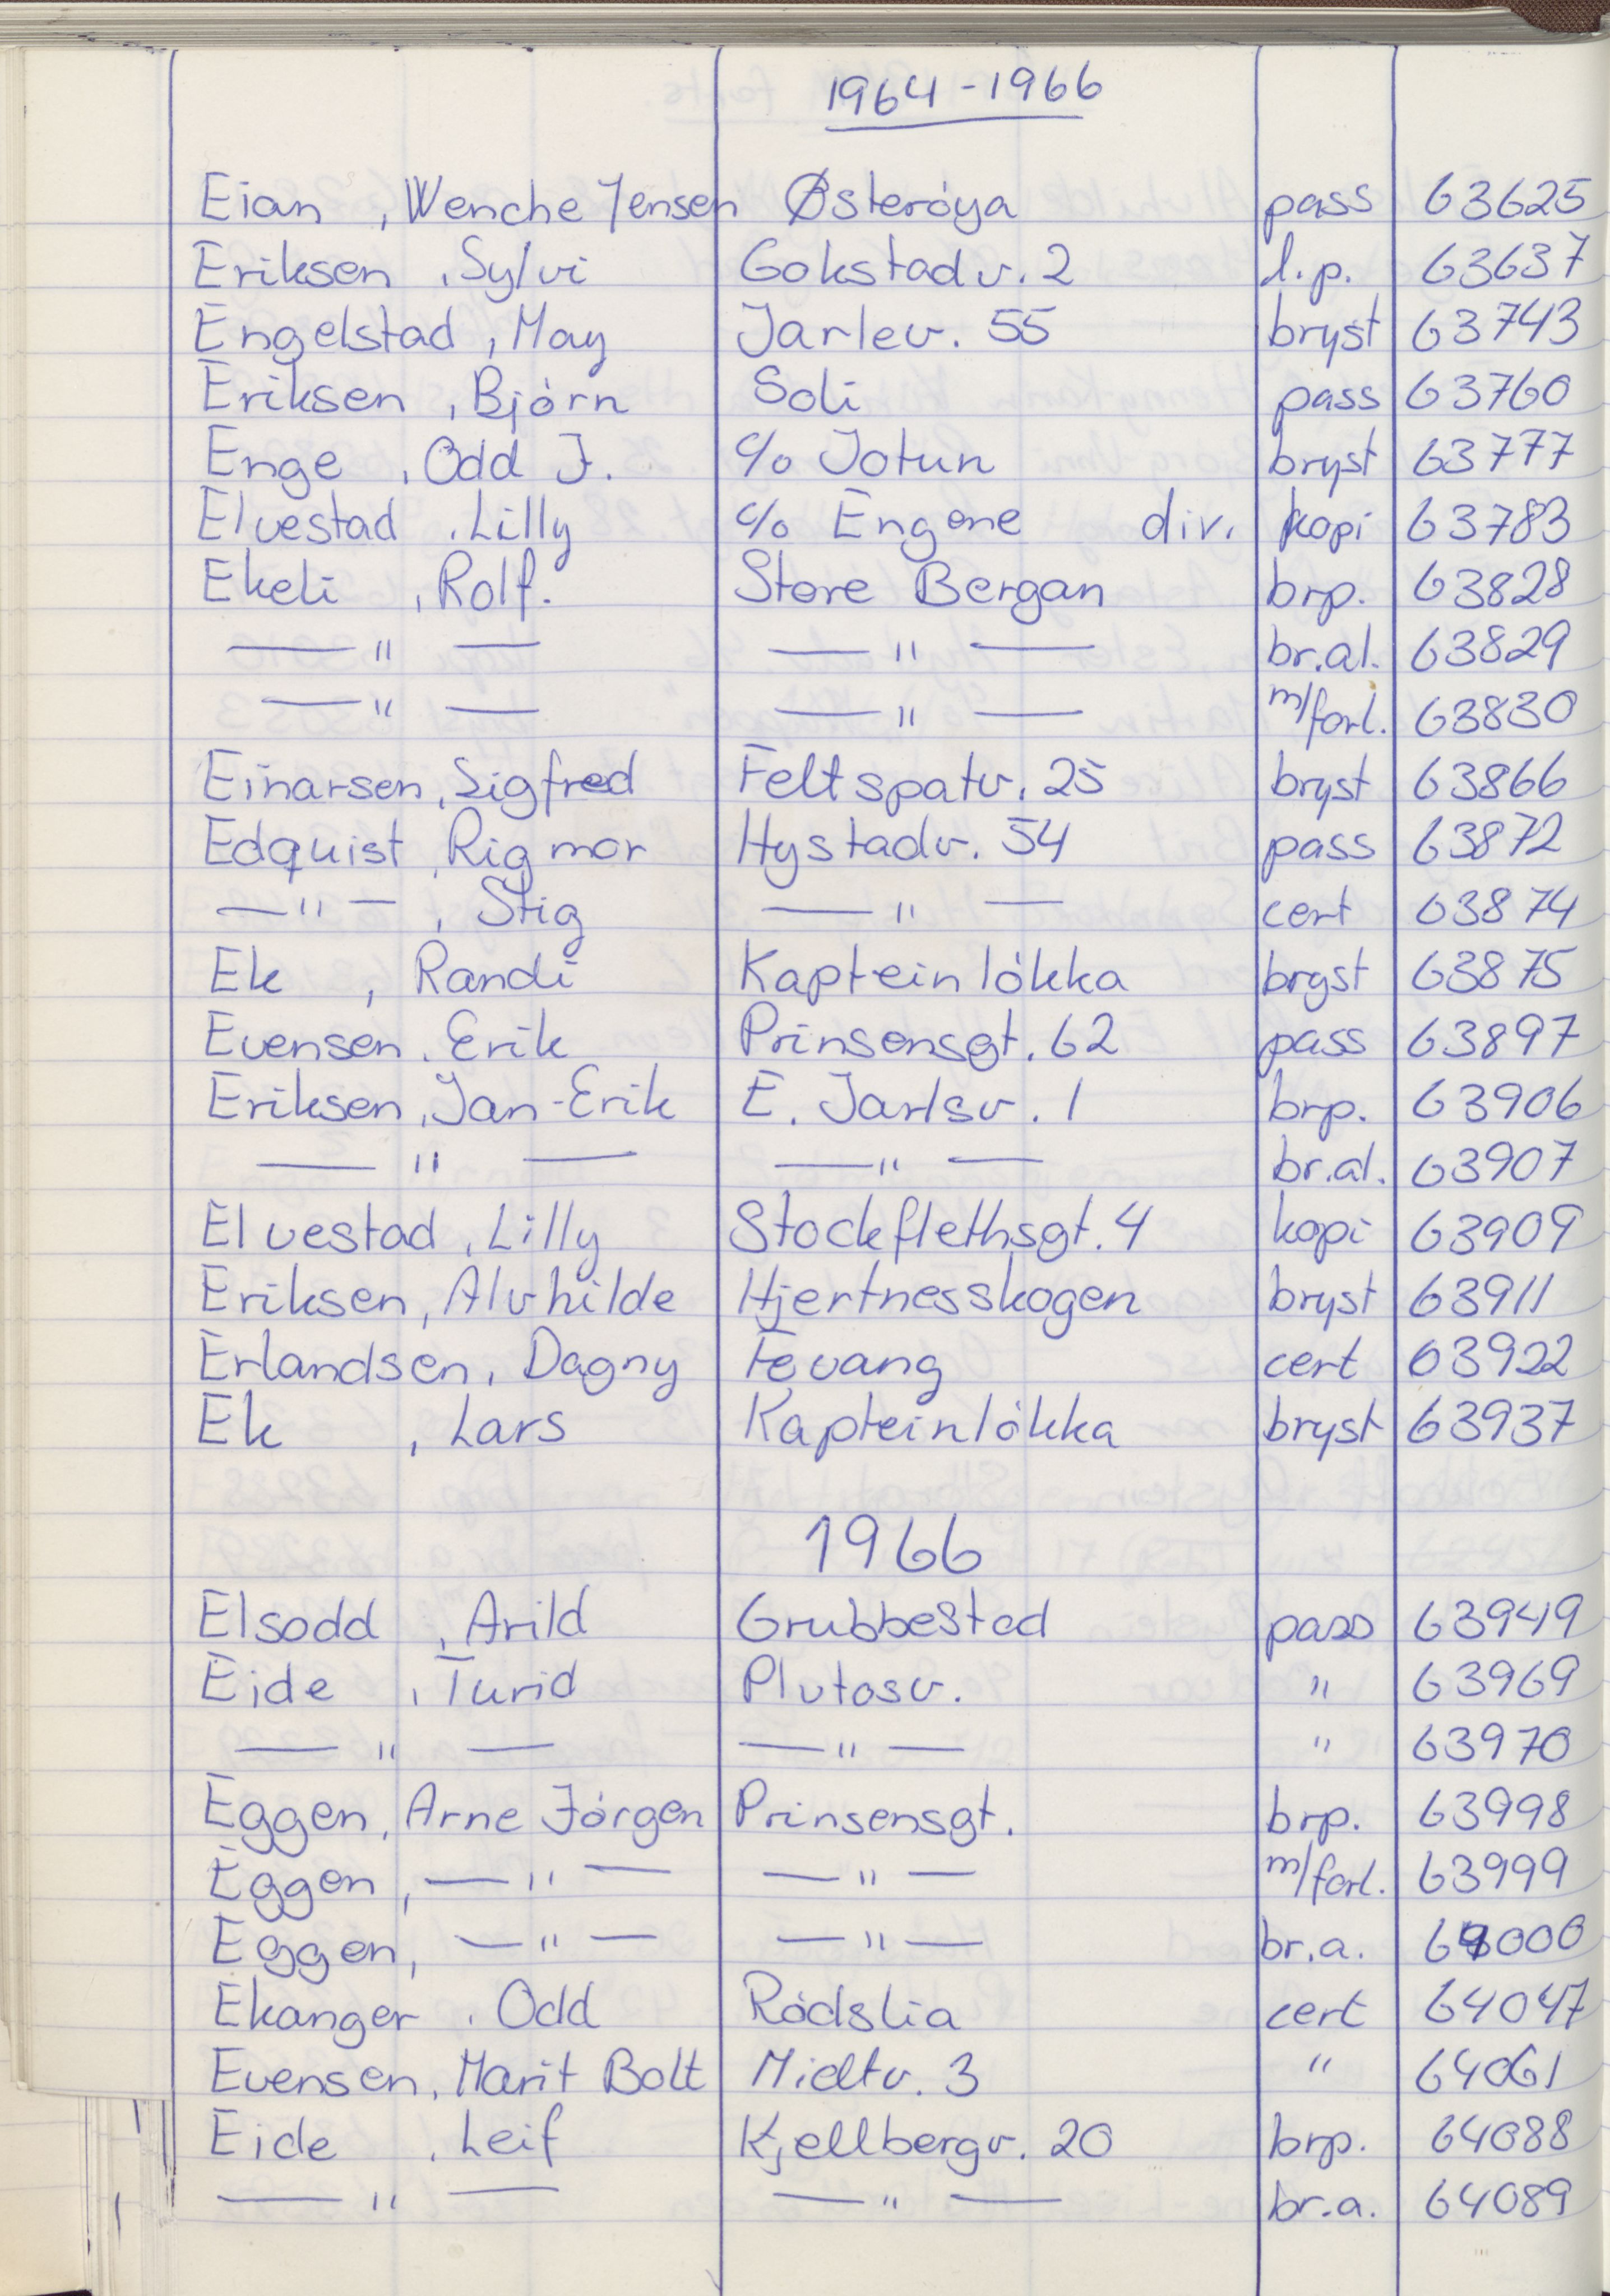 1964-1966
Eian , Wenche Jensen Østerøya pass 63625
Eriksen , Sylvi Gokstadv. 2 l.p. 63637
Engelstad , May Jarlev. 55 bryst 63743
Eriksen , Bjørn Soli pass 63760
Enge , Odd J. c/o Jotun bryst 63777
Elvestad , Lilly c/o Engene div. kopi 63783
Ekeli , Rolf. Store Bergan brp. 63828
— " — — " — br.al. 63829
— " — — " — m/forl. 63830
Einarsen , Sigfred Feltspatv. 25 bryst 63866
Edquist , Rigmor Hystadv. 54 pass 63872
— " — , Stig — " — cert 63874
Ek , Randi Kapteinløkka bryst 63875
Evensen , Erik Prinsensgt. 62 pass 63897
Eriksen , Jan-Erik E. Jarlsv. 1 brp. 63906
— " — — " — br.al. 63907
Elvestad , Lilly Stockflethsgt. 4 kopi 63909
Eriksen , Alvhilde Hjertnesskogen bryst 63911
Erlandsen , Dagny Fevang cert 63922
Ek , Lars Kapteinløkka bryst 63937
1966
Elsodd , Arild Grubbestad pass 63949
Eide , Turid Plutosv. " 63969
— " — — " — " 63970
Eggen , Arne Jørgen Prinsensgt. brp. 63998
Eggen , — " — — " — m/forl. 63999
Eggen , — " — — " — br.a. 64000
Ekanger , Odd Rødslia cert 64047
Evensen , Marit Bolt Midtv. 3 " 64061
Eide , Leif Kjellbergv. 20 brp. 64088
— " — — " — br.a. 64089